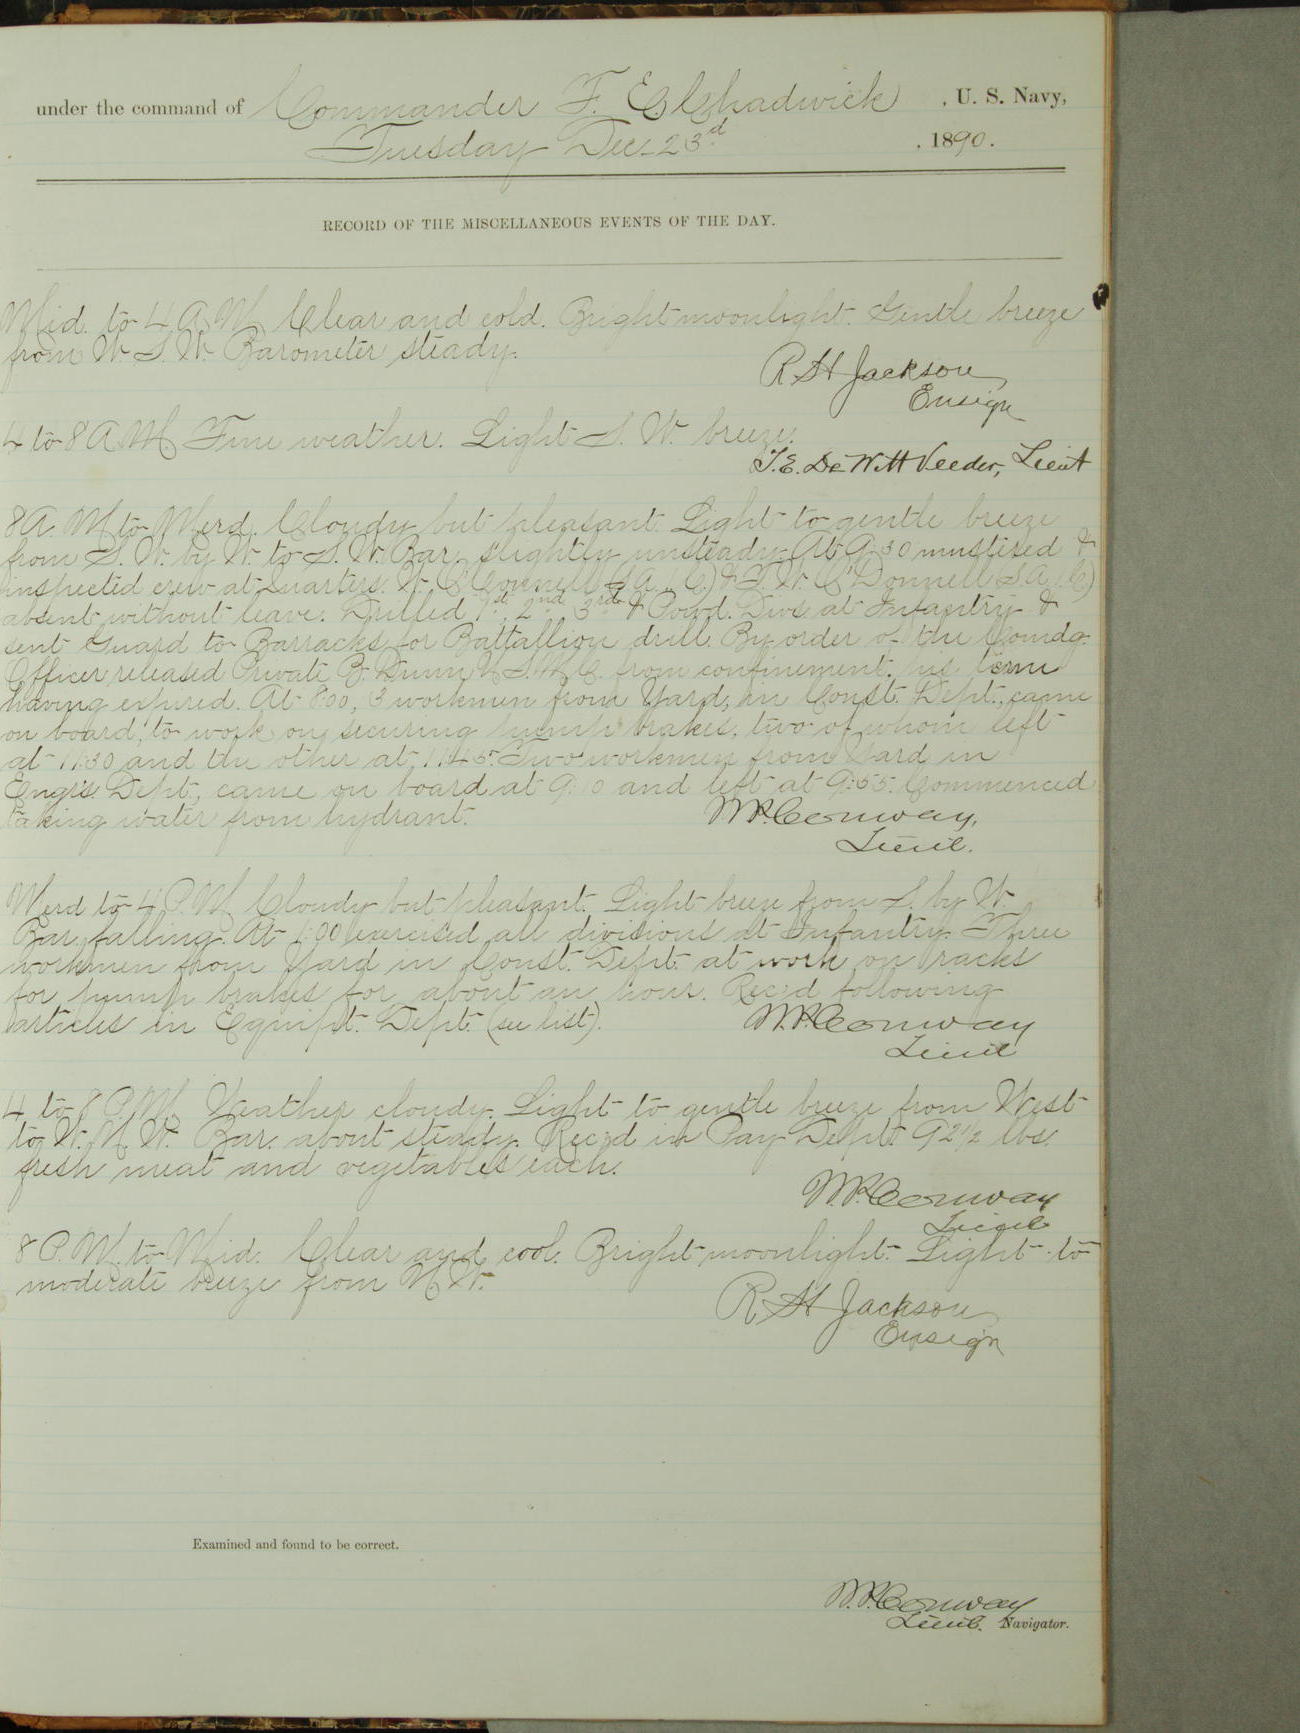 under the command of Commander F. E. Chadwick , U. S. Navy,
Tuesday Dec. 23rd , 1890.
RECORD OF THE MISCELLANEOUS EVENTS OF THE DAY.
Mid. to 4 A.M. Clear and cold. Bright moonlight. Gentle breeze
from W. S. W. Barometer steady.
R H Jackson
Ensign
4 to 8 A.M. Fine weather. Light S. W. breeze.
T. E. DeWitt Veeder, Lieut
8 A. M. to Merd. Cloudy but pleasant. Light to gentle breeze
from S. W. by W. to S. W. Bar. slightly unsteady. At 9:30 mustered &
inspected crew at quarters. W. O'Connell & T. W. O'Donnell
absent without leave. Drilled 1st, 2nd, 3rd & Powd. Divs. at Infantry &
sent Guard to Barracks for Battallion drill. By order of the Comdg.
Officer released Private B. Dunn U.S.M.C. from confinement, his term
having expired. At 8:00, 3 workmen from Yard, in Const. Dept., came
on board, to work on securing pump brakes, two of whom left
at 11:30 and the other at 11:45. Two workmen from Yard in
Engr's. Dept., came on board at 9:10 and left at 9:55. Commenced
taking water from hydrant.
W.P. Conway,
Lieut.
Merd to 4 P.M. Cloudy but pleasant. Light breeze from S. by W.
Bar. falling. At 1:00 exercised all divisions at Infantry. Three
workmen from Yard in Const. Dept. at work on racks
for pump brakes for about an hour. Rec'd following
articles in Equipt. Dept. (see list).
W.P. Conway
Lieut
4 to 8 P.M. Weather cloudy. Light to gentle breeze from West
to W. N. W. Bar. about steady. Rec'd in Pay Dept. 92 1/2 lbs.
fresh meat and vegetables each.
W.P. Conway
Lieut
8 P.M. to Mid. Clear and cool. Bright moonlight. Light to
moderate breeze from N.W.
R H Jackson
Ensign
Examined and found to be correct.
W.P. Conway
Lieut. Navigator.